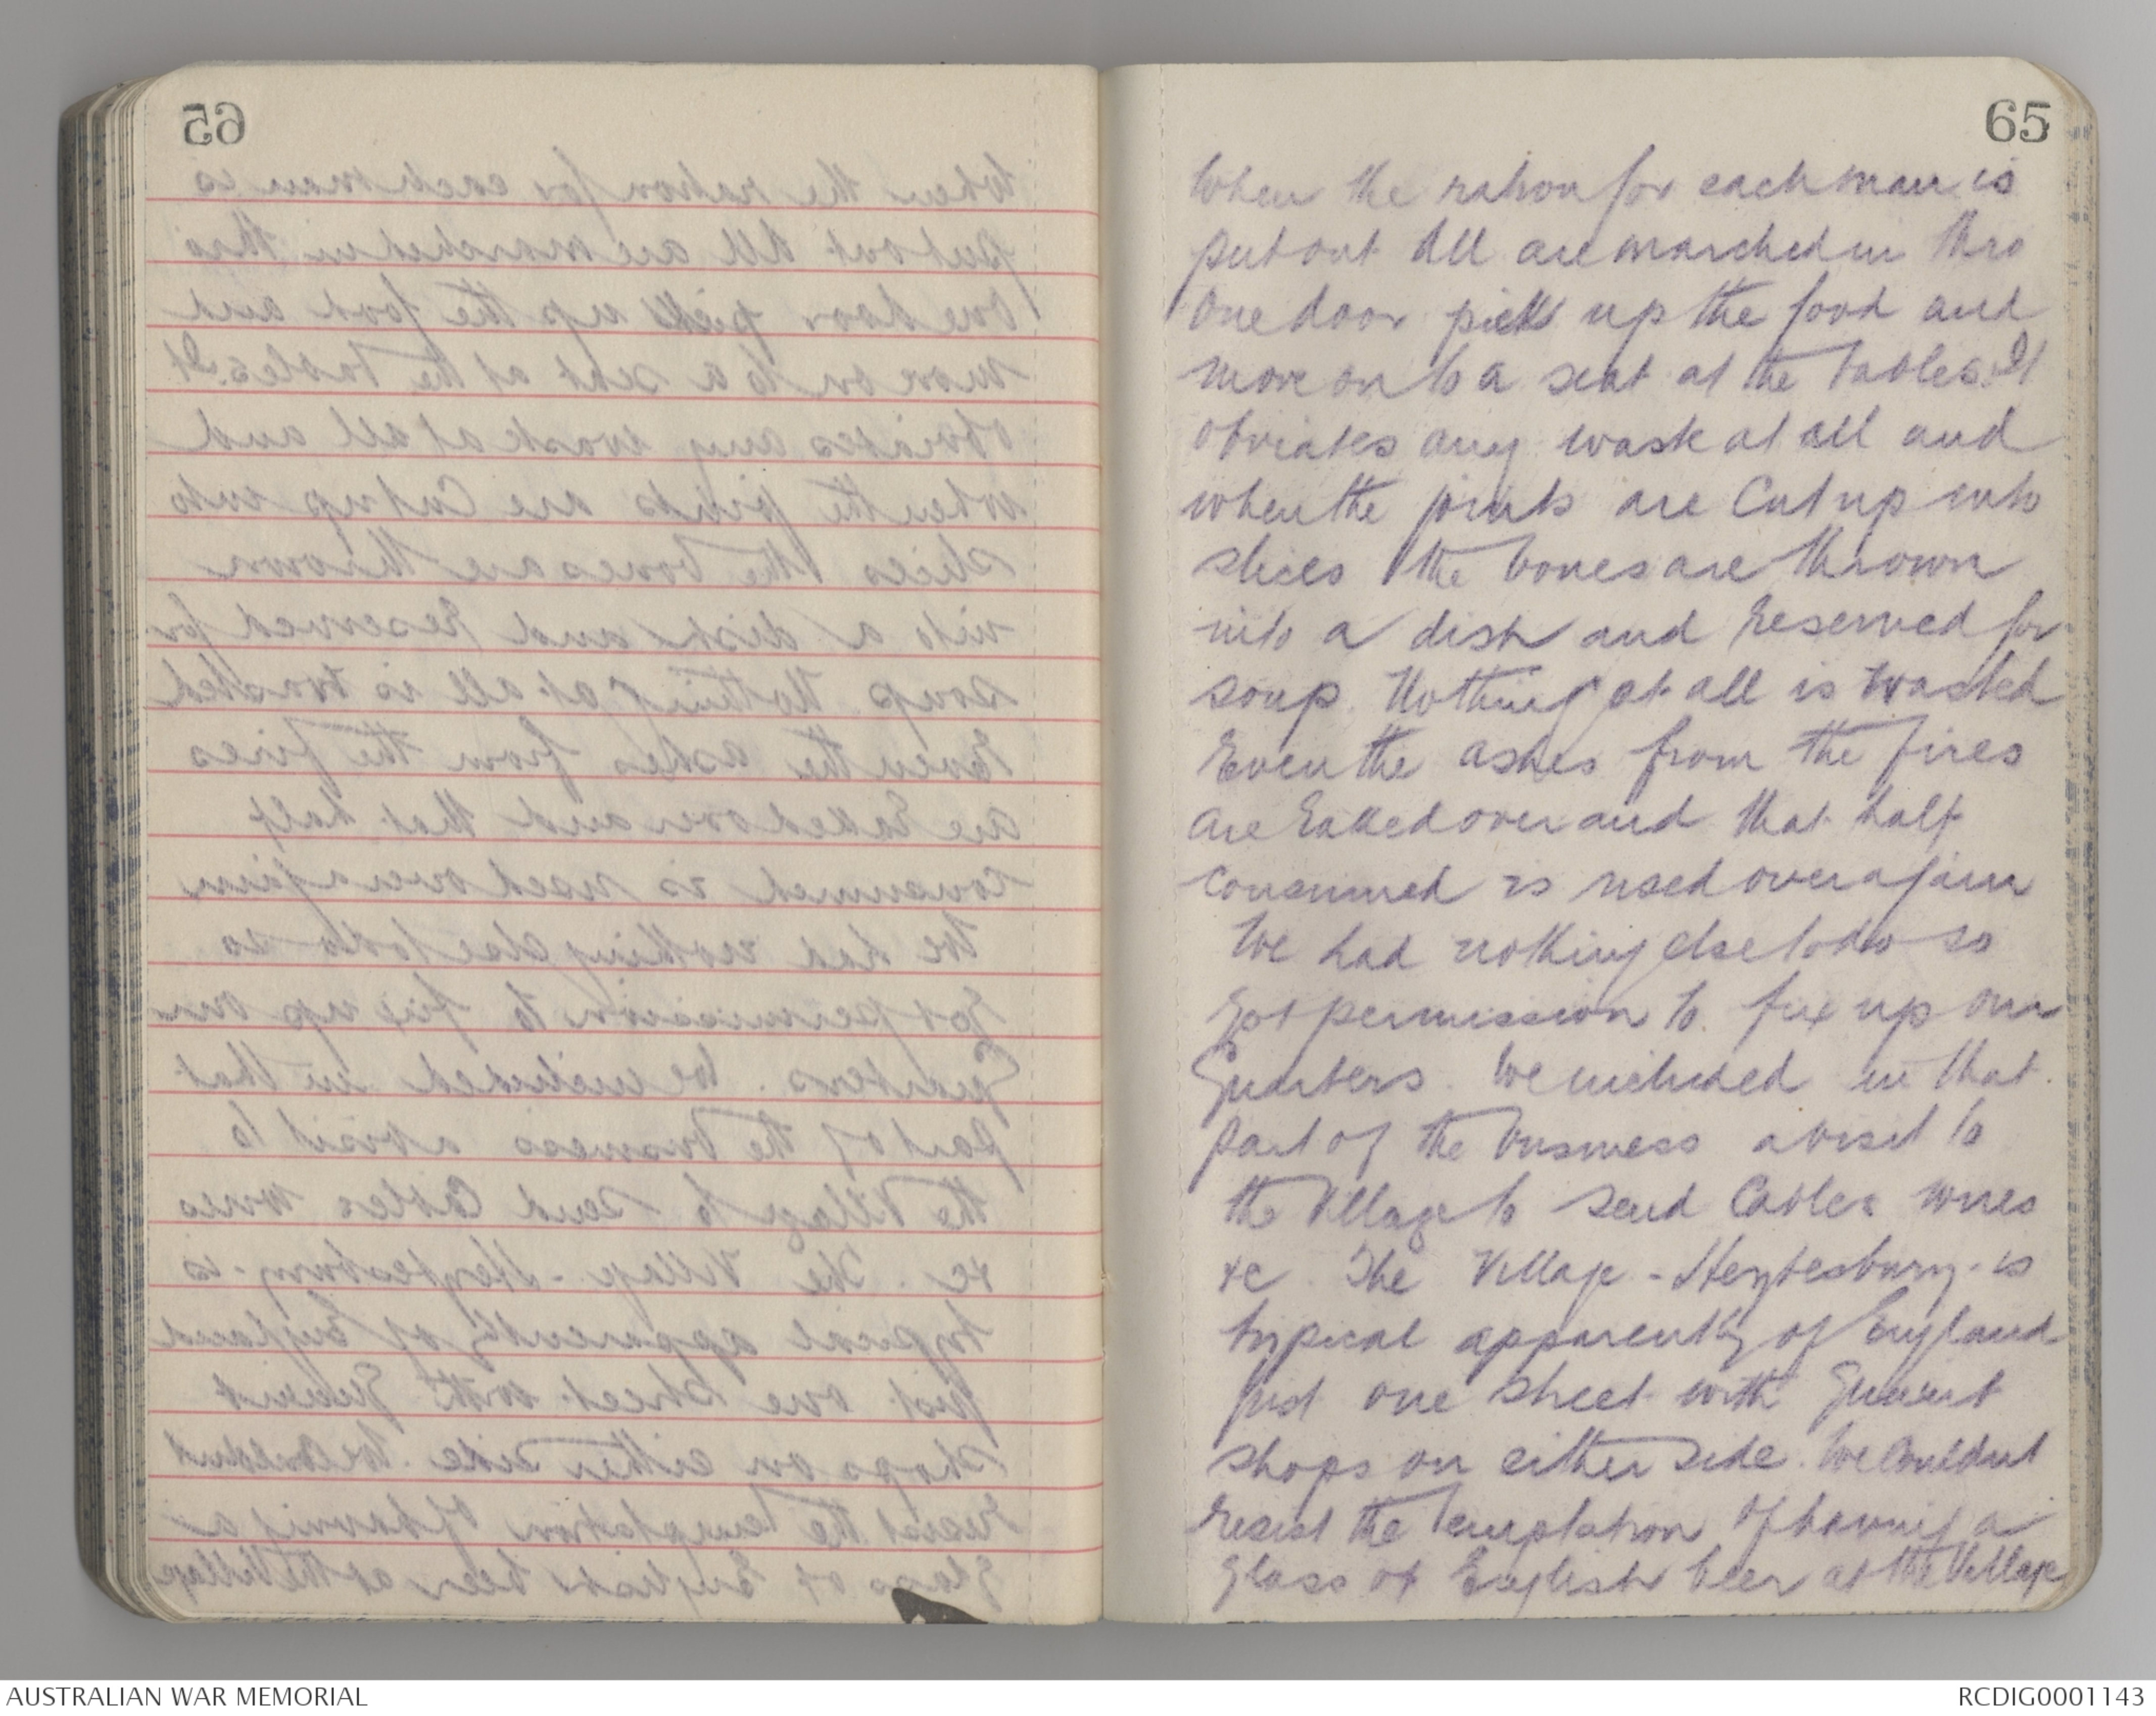 65
When the ration for each man is
put out All are marched in thro
one door pick up the food and
move on to a seat at the tables. It
obviates any waste at all and
when the joints are Cut up into
slices the bones are thrown
into a dish and reserved for
soup. Nothing at all is wasted
Even the ashes from the fires
are raked over and that half
consumed is used over again
We had nothing else to do so
got permission to fix up our
Quarters. We included in that
part of the business a visit to
the Village to send Cables wires
&c. The Village - Heytesbury - is
typical apparently of England
just one street with quaint
shops on either side. We couldnt
resist the temptation of having a
glass of English beer at the Village
AUSTRALIAN WAR MEMORIAL
RCDIG0001143